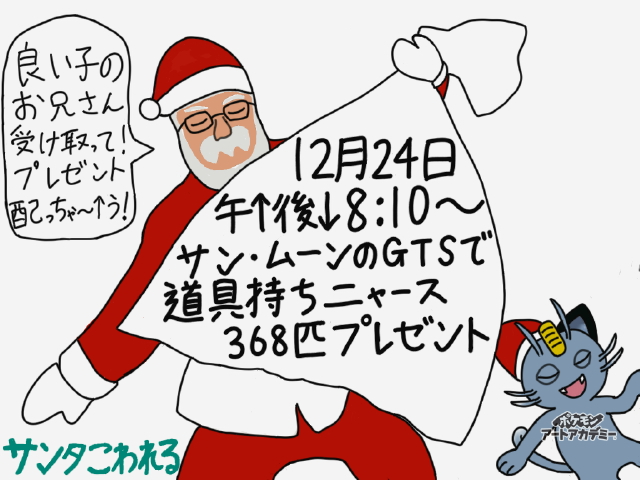 良い子の
お兄さん
受け取って!
プレゼント
配っちゃ〜↑う!
12月24日
午↑後↓8:10〜
サン・ムーンのGTSで
道具持ちニャース
368匹プレゼント
サンタこわれる
ポケモン
アートアカデミー